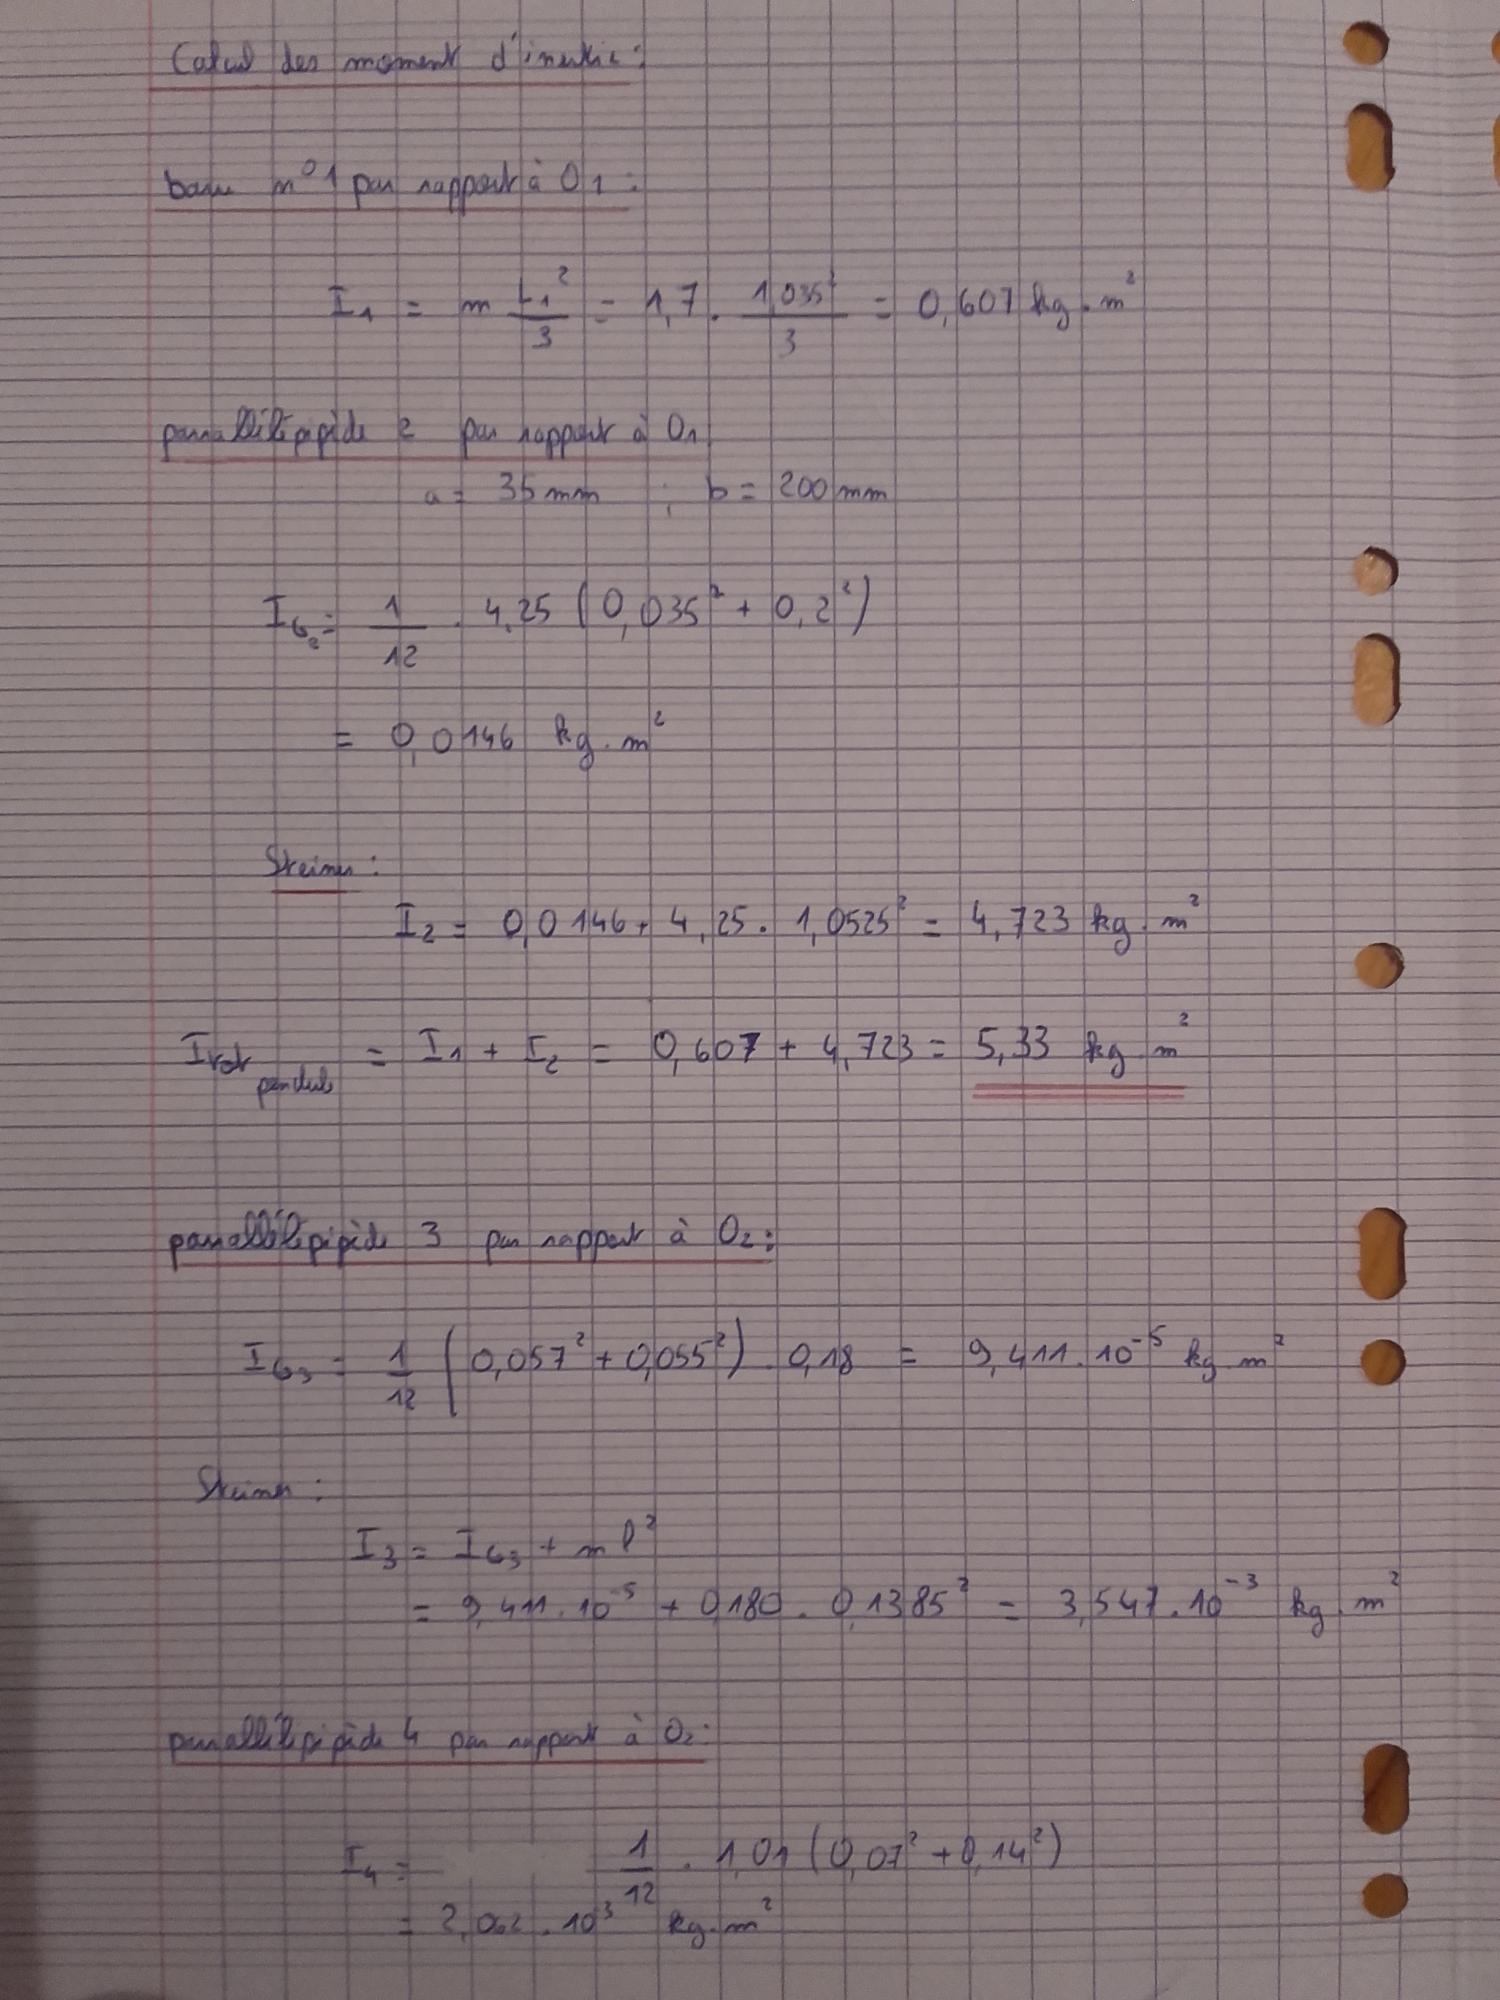 Calcul des moment d'inertie :
barre n°1 par rapport à O1 :
I₁ = m L₁²/3 = 1,7 . 1,035²/3 = 0,607 kg.m²
parallélépipède 2 par rapport à O₁
a = 35 mm ; b = 200 mm
I_G₂ = 1/12 . 4,25 (0,035² + 0,2²)
= 0,0146 kg.m²
Steiner :
I₂ = 0,0146 + 4,25 . 1,0525² = 4,723 kg.m²
Itot pendule = I₁ + I₂ = 0,607 + 4,723 = 5,33 kg.m²
parallélépipède 3 par rapport à O₂ :
I_G₃ = 1/12 (0,057² + 0,055²) . 0,18 = 9,411.10⁻⁵ kg.m²
Steiner :
I₃ = I_G₃ + m l²
= 9,411.10⁻⁵ + 0,180 . 0,1385² = 3,547.10⁻³ kg.m²
parallélépipède 4 par rapport à O₂ :
I₄ = 1/12 . 1,01 (0,07² + 0,14²)
= 2,062.10³ kg.m²